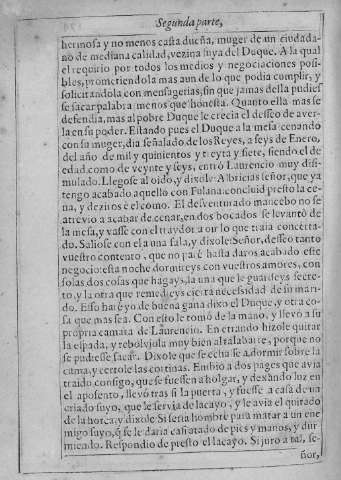 Segunda parte,
hermosa y no menos casta dueña, muger de un ciudada-
no de mediana calidad, vezina suya del Duque. A la qual
el requirio por todos los medios y negociaciones posi-
bles, prometiendola mas aun de lo que podia cumplir, y
solicitandola con mensagerias, sin que jamas della pudies
se sacar palabra menos que honesta. Quanto ella mas se
defendia, mas al pobre Duque le crecia el desseo de aver-
la en su poder. Estando pues el Duque a la mesa cenando
con su muger, dia señalado de los Reyes, a seys de Enero,
del año de mil y quinientos y treyta y siete, siendo el de
edad como de veynte y seys, entrò Laurencio muy dissi-
mulado. Llegose al oido, y dixole: Albricias señor, que ya
tengo acabado aquello con Fulana: concluid presto la ce-
na, y deziros è el como. El desventurado mancebo no se
atrevio a acabar de cenar, en dos bocados se levantò de
la mesa, y vasse con el traydor a oir lo que traia concerta-
do. Saliose con el a una sala, y dixole: Señor, desseo tanto
vuestro contento, que no parè hasta daros acabado este
negocio: esta noche dormireys con vuestros amores, con
solas dos cosas que hagays, la una que le guardeys secre-
to, y la otra que remedieys cierta necessidad de su mari-
do. Esso harè yo de buena gana dixo el Duque, y otra co-
sa que mas sea. Con esto le tomò de la mano, y llevò a su
propria camara de Laurencio. En entrando hizole quitar
la espada, y rebolviola muy bien al talabarte, porque no
se pudiesse sacar. Dixole que se echasse a dormir sobre la
cama, y cerrole las cortinas. Embiò a dos pages que avia
traido consigo, que se fuessen a holgar, y dexando luz en
el aposento, llevò tras si la puerta, y fuesse a casa de un
criado suyo, que le servia de lacayo, y le avia el quitado
de la horca, y dixole: Si seria hombre para matar a un ene
migo suyo, q̃ se le daria casi atado de pies y manos, y dur-
miendo. Respondio de presto el lacayo. Si juro a tal, se-
ñor,